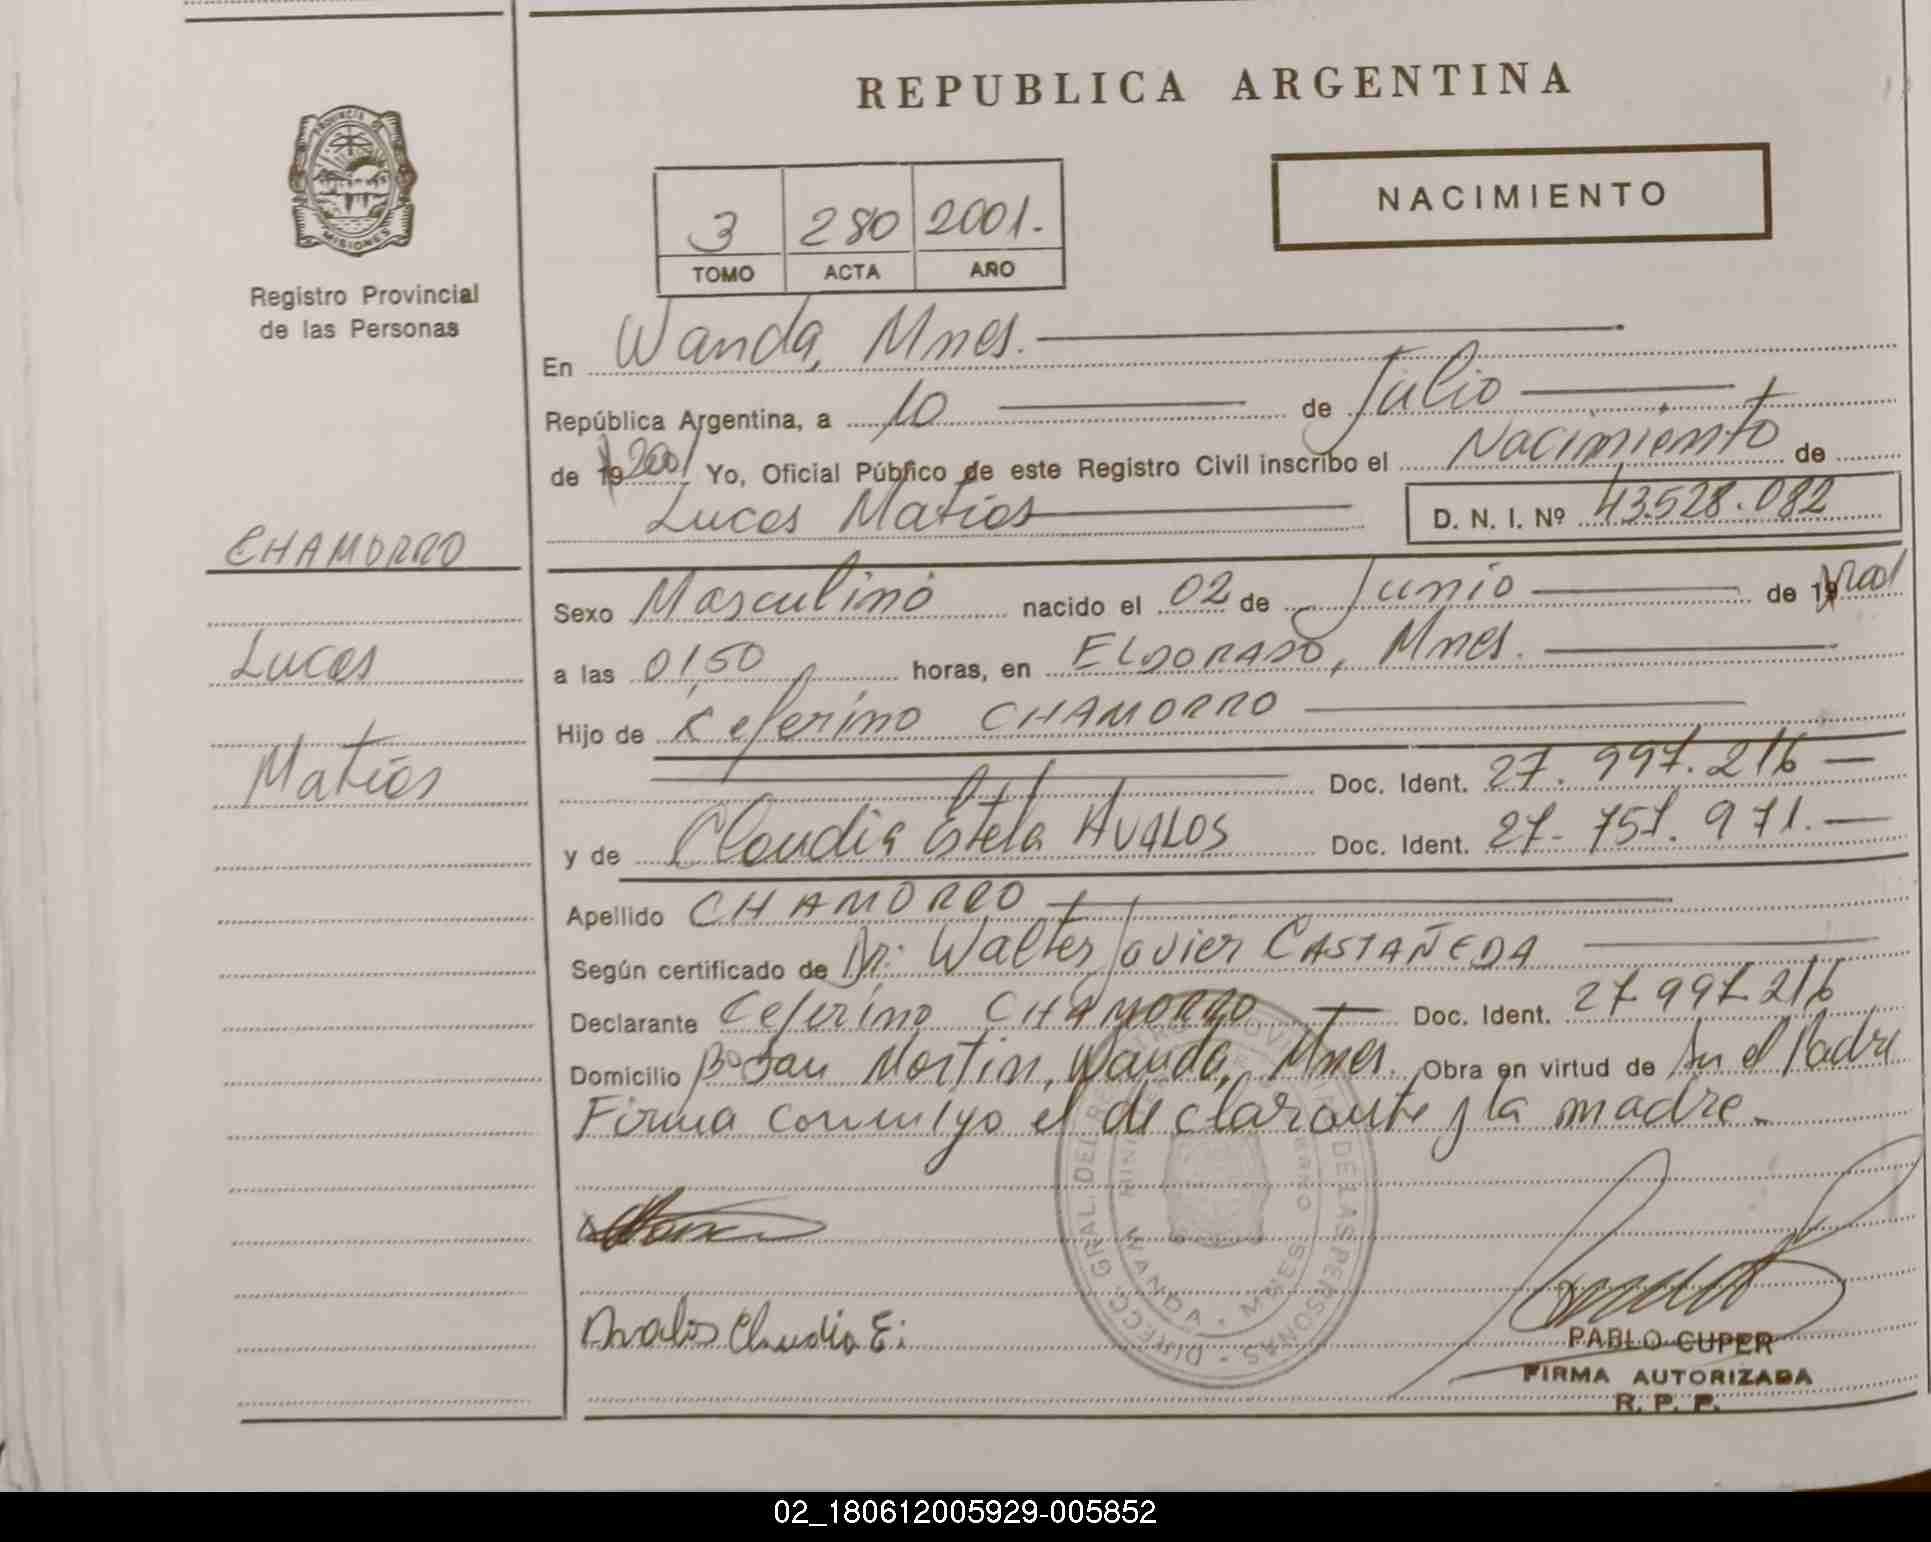 REPUBLICA ARGENTINA
PROVINCIA DE
MISIONES
Registro Provincial
de las Personas
NACIMIENTO
3 280 2001.
TOMO ACTA AÑO
En Wanda, Mnes.
República Argentina, a 10 de Julio
de 19 2001 Yo, Oficial Público de este Registro Civil inscribo el Nacimiento de
Lucas Matías D. N. I. Nº 43.528.082
CHAMORRO
Lucas
Matías
Sexo Masculino nacido el 02 de Junio de 19 2001
a las 01,50 horas, en ELDORADO, Mnes.
Hijo de Ceferino CHAMORRO
Doc. Ident. 27.997.216
y de Claudia Estela AVALOS Doc. Ident. 27.757.971.
Apellido CHAMORRO
Según certificado de Dr. Walter Javier CASTAÑEDA
Declarante Ceferino CHAMORRO Doc. Ident. 27.997.216
Domicilio Bº San Martin, Wanda, Mnes. Obra en virtud de ser el Padre
Firma conmigo el declarante y la madre.
DIRECC. GRAL. DEL DE LAS PERSONAS
WANDA - MNES
Avalos Claudia E.
PABLO CUPER
FIRMA AUTORIZADA
R. P. P.
02_180612005929-005852